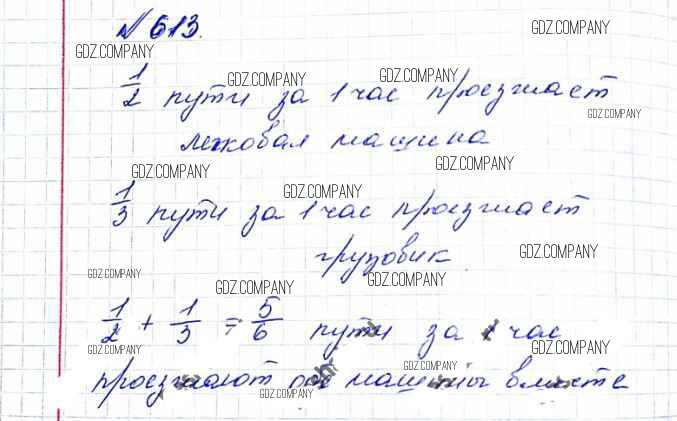 № 613.
GDZ.COMPANY GDZ.COMPANY
GDZ.COMPANY GDZ.COMPANY
1/2 пути за 1 час проезжает
GDZ.COMPANY
легковая машина
GDZ.COMPANY GDZ.COMPANY
GDZ.COMPANY
1/3 пути за 1 час проезжает
грузовик
GDZ.COMPANY
GDZ.COMPANY GDZ.COMPANY GDZ.COMPANY
1/2 + 1/3 = 5/6 пути за 1 час
GDZ.COMPANY GDZ.COMPANY
GDZ.COMPANY
проезжают машины вместе
GDZ.COMPANY